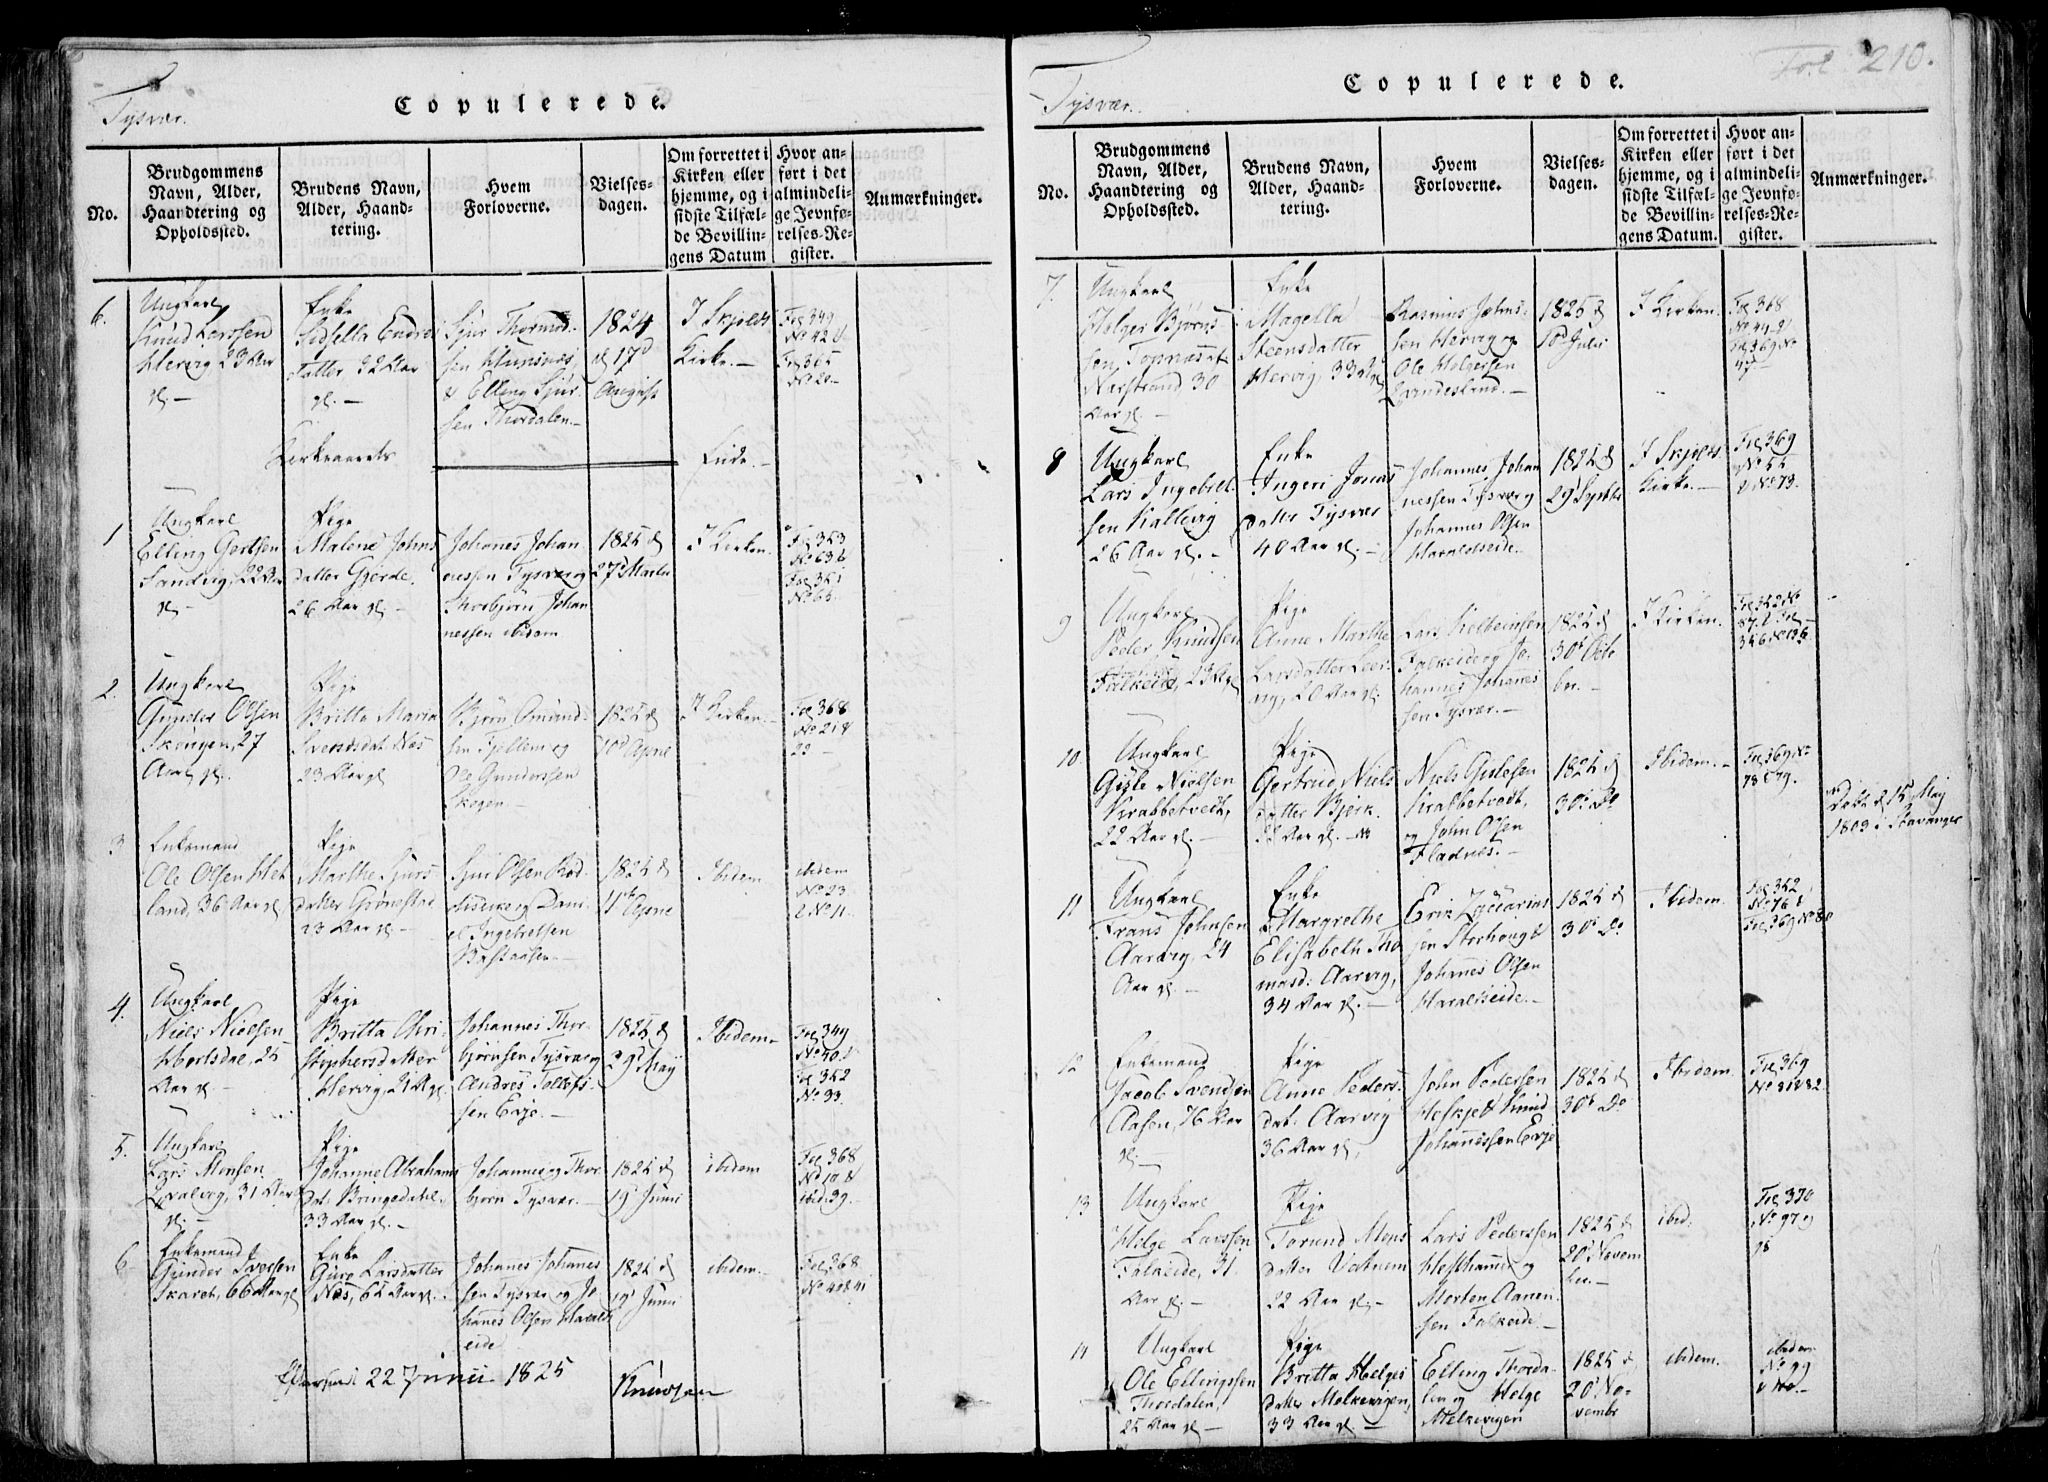 Tysvær.
Copulerede.
No.
Brudgommens
Navn, Alder,
Haandtering og
Opholdssted.
Brudens Navn,
Alder, Haand-
tering.
Hvem
Forloverne.
Vielses-
dagen.
Om forrettet i
Kirken eller
hjemme, og i
sidste Tilfæl-
de Bevillin-
gens Datum
Hvor an-
ført i det
almindeli-
ge Jevnfø-
relses-Re-
gister.
Anmærkninger.
6.
Ungkarl
Knud Larssen
Hervig 23 Aar
Enke
Sidsella Endre
datter 32 Aar
Sjur Thormod-
sen
& Elling Sjur-
sen Thordalen.-
1824
d 17d
August
I Skjolds
Kirke.-
Fol 349
No 42 &
Fol 365
No 20.-
Kirkeaarets
Ende.-
1
Ungkarl
Elling Gertsen
Sandvig, 22 Aar
Pige
Malene Johns
datter Gjerde.
26 Aar gl.-
Johanes Johan
nessen Tysvær og
Thorbjørn Johan
nessen ibidem
1825 d
27d Marti
I Kirken.
Fol 353
No 63 &
Fol 351
No 65.
2.
Ungkarl
Gunder Olsen
Skougen, 27
Aar gl.
Pige
Britta Maria
Svendsdat. Næs
23 Aar gl
Bjørn Omund-
sen og
Ole Gunderssen
Skogen.-
1825 d
10d Aprie
I Kirken.-
Fol 368
No 21 &
22
3
Enkemand
Ole Olsen Het
land, 36 Aar gl.
Pige
Marthe Sjurs
datter Grønestad
23 Aar gl.-
Sjur Olsen
og Dani
el Ingebretsen
1825 d
11te Aprie
Ibidem
ibidem
No 23
& No 11.
4.
Ungkarl
Niels Nielsen
Hortsdal, 25
Aar gl.-
Pige
Britta Chri-
stophersdatter
Hervig, 21 A gl.
Johannes Thor-
bjørnsen Tysvær og
Andres Tollefs-
sen Erje.-
1825 d
29d May
Ibidem.-
Fol 349
No 40 &
Fol 352
No 33.
5.
Ungkarl
Lars Monsen
31 Aar
gl.-
Pige
Johanne Abraham
dat. Bringedahl.
33 Aar gl.-
Johannes og Thor-
bjørn Tysvær.-
1825 d
19d Junii
ibidem
Fol 368
No 10 &
ibid. 39.-
6
Enkemand
Gunder Iversen
Skaret, 66 Aar gl
Enke
Guro Larsdatter
Næs, 62 Aar gl.
Johanes Johanes
sen Tysvær og Jo-
hanes Olsen Harald
eide
1825 d
19d Junii
ibidem.-
Fol 368
No 40 & 41
22 Junii 1825
Tysvær.
Copulerede.
Fol 210.
No.
Brudgommens
Navn, Alder,
Haandtering og
Opholdssted.
Brudens Navn,
Alder, Haand-
tering.
Hvem
Forloverne.
Vielses-
dagen.
Om forrettet i
Kirken eller
hjemme, og i
sidste Tilfæl-
de Bevillin-
gens Datum.
Hvor an-
ført i det
almindeli-
ge Jevnfø-
relses-Re-
gister.
Anmærkninger.
7.
Ungkarl
Holger Bjørns
sen, Topnæs
Nærstrand 30
Aar gl.-
Enke
Magella
Steensdatter
Hervig, 33 A gl
Rasmus Johns-
sen Hervig og
Ole Holgersen
1825 d
10d Julii
I Kirken.
Fol 368
No 44 &
Fol 369 No
47
8
Ungkarl
Lars Ingebret-
sen Kallevig
26 Aar gl.-
Enke
Ingeri Jonas
datter Tysvær
40 Aar gl.-
Johannes Johan
nessen Tysvær og
Johannes Olsen
Haraldseide.-
1825 d
29d Septbr
I Skjolds
Kirke.-
Fol 369
No 55
& No 73.
9
Ungkarl
Peder Knudsen
Falkeid, 23 A gl
Pige
Anne Marthe
Larsdatter Leer-
vig, 20 Aar gl.
Lars Kolbeinsen
Falkeid og Jo-
hannes Johanes
sen Tysvær.-
1825 d
30d Octo
ber.-
I Kirken.
Fol 342 No
87 & Fol
346 No 136
10
Ungkarl
Gisle Nielsen
Krabbetvedt,
22 Aar gl.-
Pige
Gertrud Niels
datter Bjerk.
22 Aar gl.-
Niels Gislesen
Krabbetvedt,
og John Olsen
Fladnes.-
1825 d
30d Do
Ibidem.-
Fol 369 No
78 & 79.
Døbt d 15 May
1803 i Stavanger
11
Ungkarl
Frans Johnsen
Aarvig, 24
Aar gl.-
Enke
Margrethe
Elisabeth Tho
masd: Aarvig,
34 Aar gl.-
Erik Zacarias
sen Storhoug &
Johannes Olsen
Haraldseide.-
1825 d
30d Do
Ibidem.
Fol 342
No 76 &
Fol 369 No 80
12
Enkemand
Jacob Svendsen
Aasen, 76 Aar
gl.-
Pige
Anne Peders-
dat. Aarvig
36 Aar gl.
John Pedersen
Heskjes & Knud
Johannessen Erje
1825 d
30d Do
Ibidem.
Fol 369
No 81 & 82.
13
Ungkarl
Helge Larssen
Falkeide, 31.
Aar gl.-
Pige
Torund Mons
datter Vatnem
22 Aar gl.-
Lars Pederssen
Hesthammer og
Morten Aanen-
sen Falkeide.-
1825 d
20d Novem
ber.-
ibid.
Fol 370
No 97 &
98
14
Ungkarl
Ole Ellingssen
Thordalen,
25 Aar gl.-
Pige
Britta Helges
datter Melkevigen,
33 Aar gl.-
Elling Thorda-
len og Helge
Melkevigen
1825 d
20d No-
vembr
ibidem.
ibidem
No 99
& 100.-